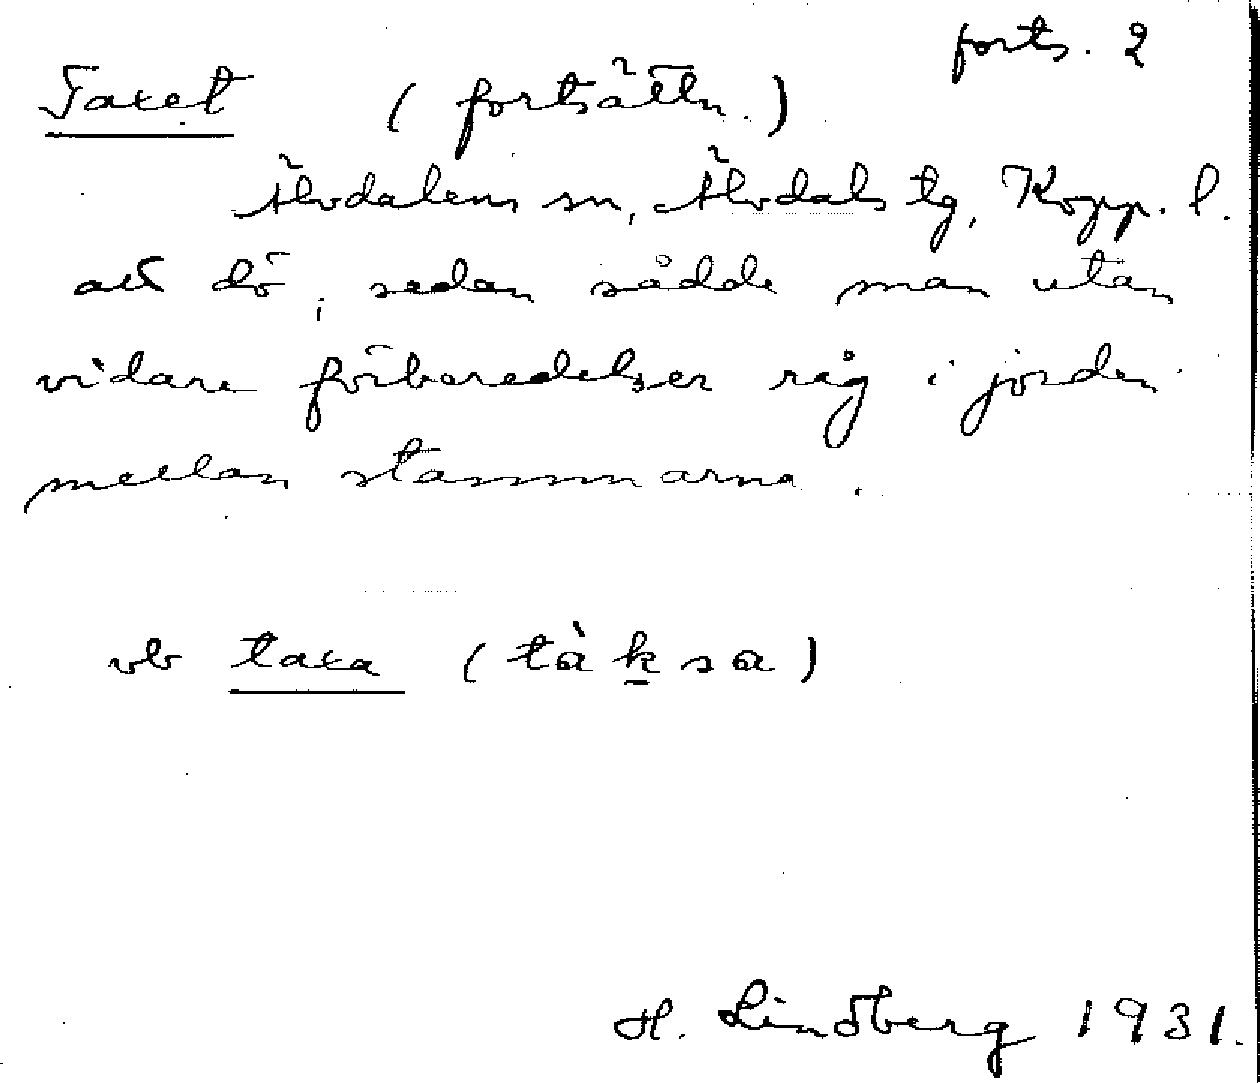 forts. 2
Taxet (fortsättn.)
Älvdalens sn, Älvdals tg, Kopp. l.
att dö, sedan sådde man utan
vidare förberedelser råg i jorden
mellan stammarna.
vb taxa (tàksa)
H. Lindberg 1931.